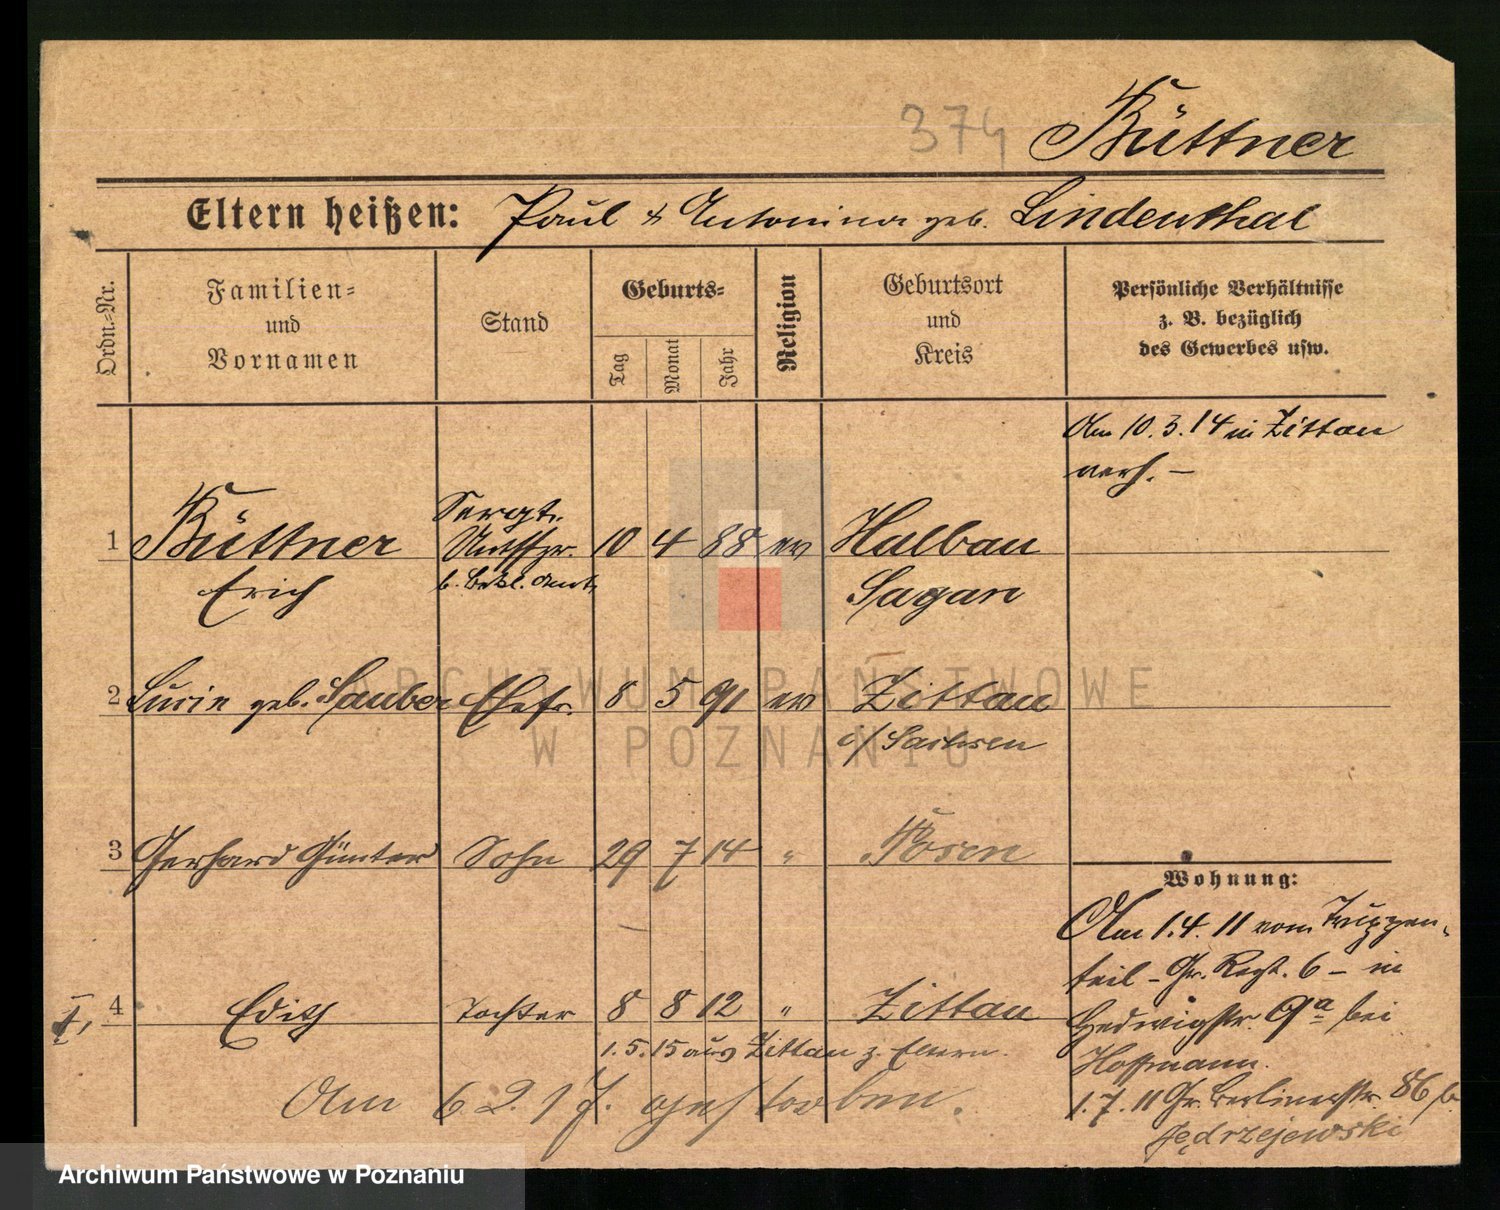 374 Büttner
Eltern heißen: Paul & Antonina geb. Lindenthal
Ordn.-Nr.
Familien-
und
Vornamen
Stand
Geburts-
Tag
Monat
Jahr
Religion
Geburtsort
und
Kreis
Persönliche Verhältnisse
z. B. bezüglich
des Gewerbes usw.
Am 10.3.14 in Zittau
verh. –
Sergt.
1 Büttner 10 4 88 ev Halbau
b. Bekl. Amt.
Erich Sagan
2 Lucie geb. Sauber Ehefr. 8 5 91 ev Zittau
i/Sachsen
3 Gerhard Günter Sohn 29 7 14 " Posen
Wohnung:
Am 1.4.11 vom Truppen-
teil – Gr. Regt. 6 – in
I, 4 Edith Tochter 8 8 12 " Zittau
Hedwigstr. 9a bei
1.5.15 aus Zittau z. Eltern.
Hoffmann.
Am 6 2. 17. gestorben.
1.7.11 Gr. Berlinerstr. 86 b.
Jędrzejewski
ARCHIWUM PAŃSTWOWE
W POZNANIU
Archiwum Państwowe w Poznaniu